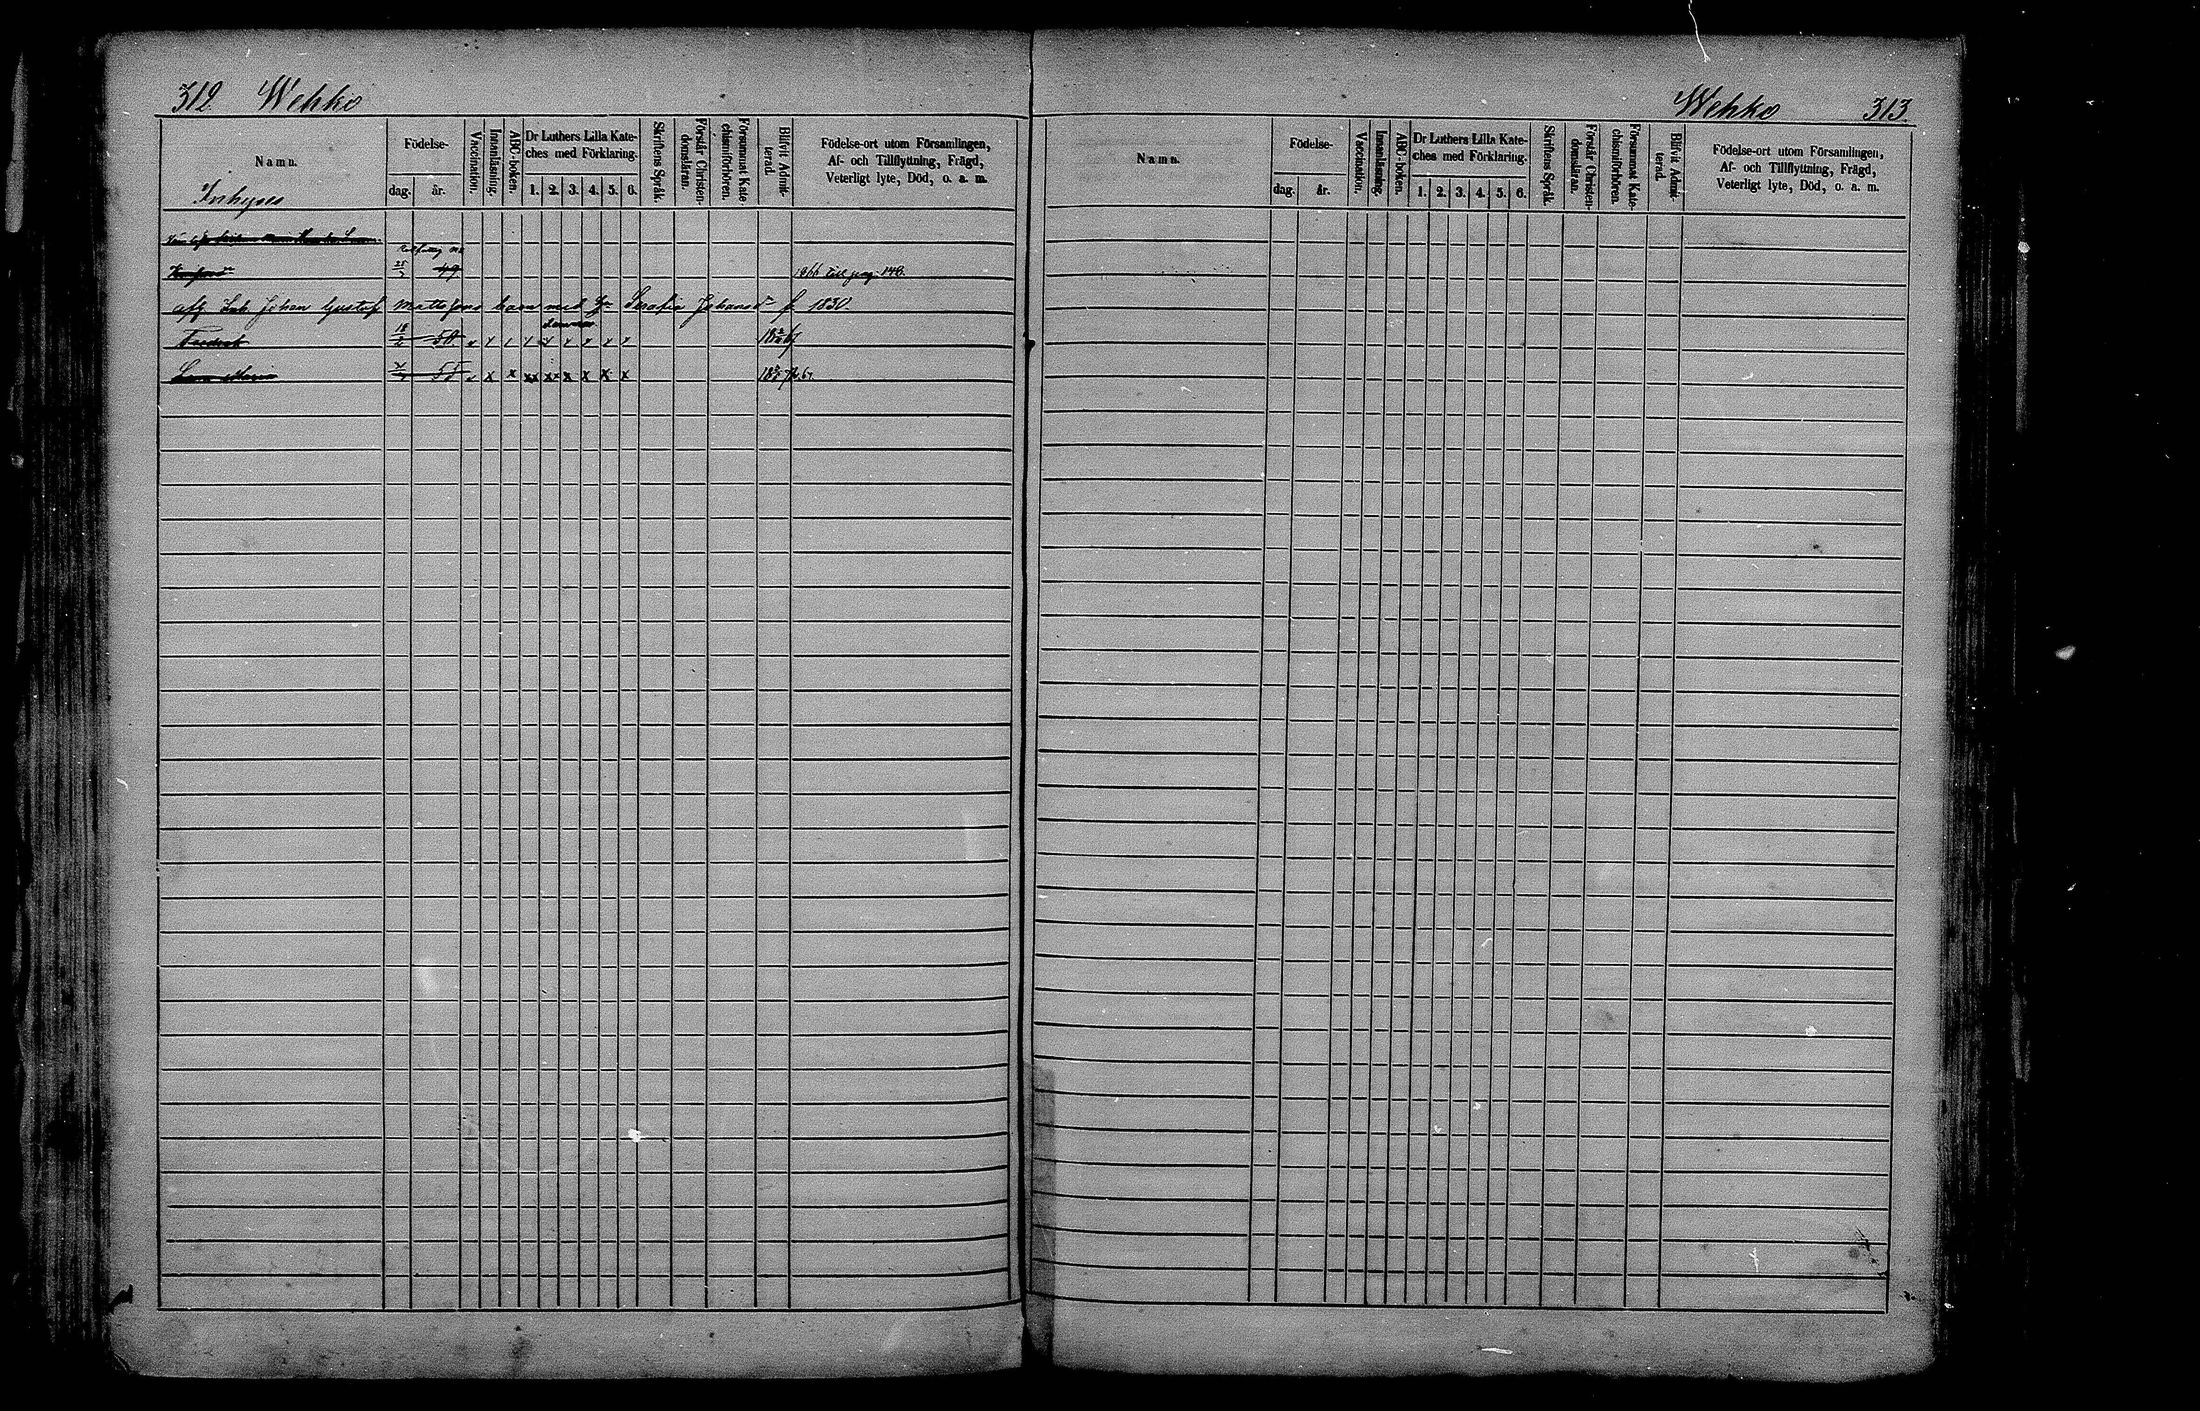 312 Wehko
Namn.
Inhyses
Födelse-
dag. år.
Vaccination.
Innanläsning.
ABC-boken.
Dr Luthers Lilla Kate-
ches med Förklaring.
1. 2. 3. 4. 5. 6.
Skriftens Språk.
Förstår Christen-
domsläran.
Försummat Kate-
chismiförhören.
Blifvit Admit-
terad.
Födelse-ort utom Församlingen,
Af- och Tillflyttning, Frägd,
Veterligt lyte, Död, o. a. m.
49 1866 till pag. 140.
afl. Johan Gustaf Mattssons barn med Serafia Johansd. f. 1830.
Fredrik 18/2 50
Maria 55
Wehko 313.
Namn.
Födelse-
dag. år.
Vaccination.
Innanläsning.
ABC-boken.
Dr Luthers Lilla Kate-
ches med Förklaring.
1. 2. 3. 4. 5. 6.
Skriftens Språk.
Förstår Christen-
domsläran.
Försummat Kate-
chismiförhören.
Blifvit Admit-
terad.
Födelse-ort utom Församlingen,
Af- och Tillflyttning, Frägd,
Veterligt lyte, Död, o. a. m.